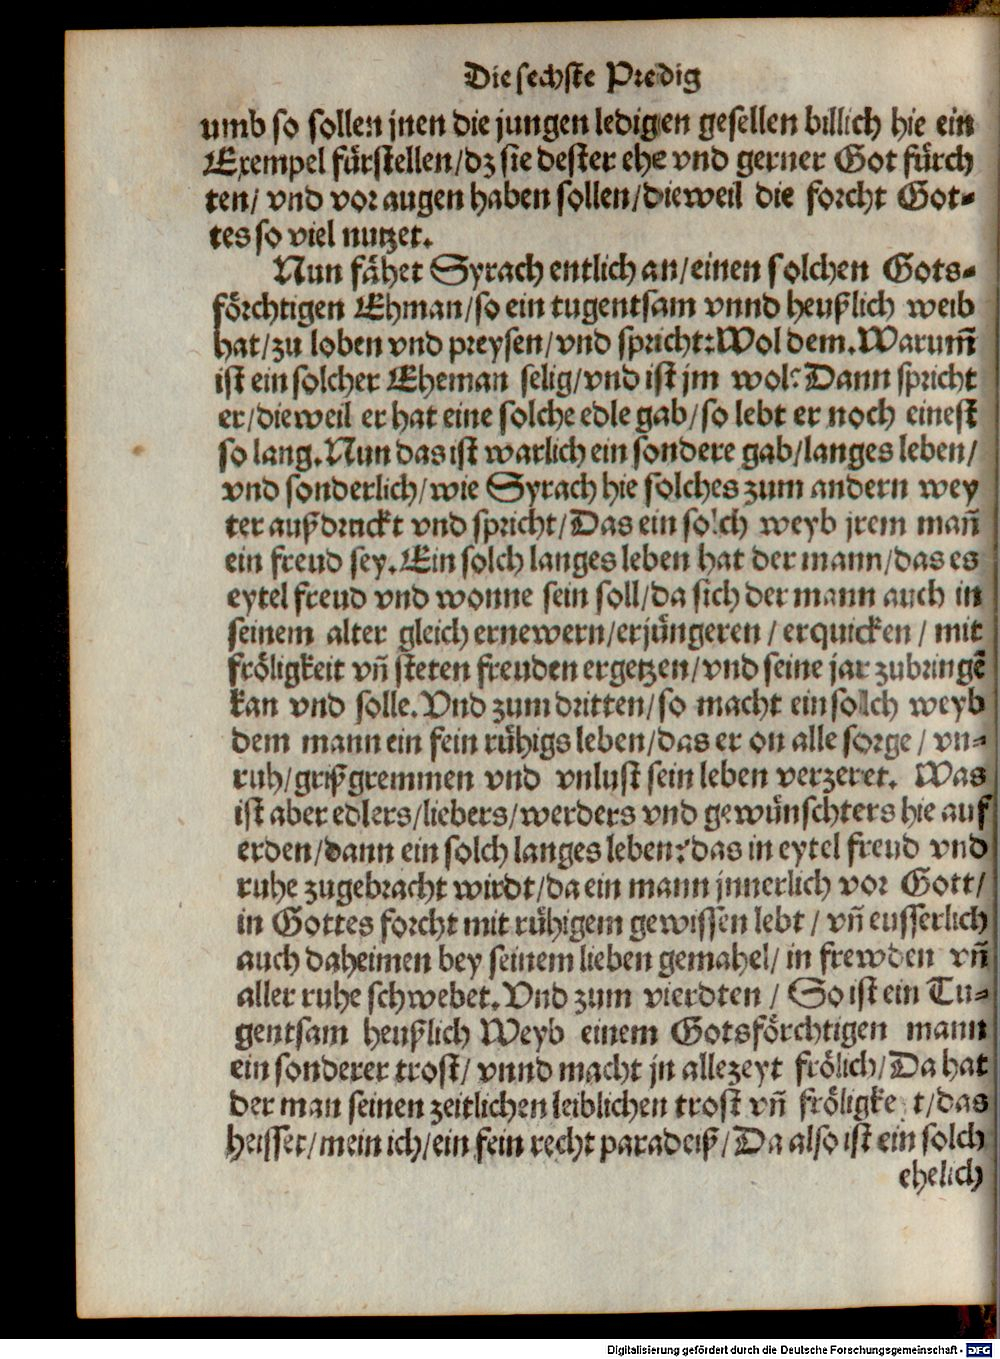 Die sechste Predig
umb so sollen jnen die jungen ledigen gesellen billich hie ein
Exempel fürstellen/dz sie dester ehe vnd gerner Got fürch
ten/ vnd vor augen haben sollen/dieweil die forcht Got⸗
tes so viel nutzet.
Nun fähet Syrach entlich an/einen solchen Gots⸗
förchtigen Ehman/so ein tugentsam vnnd heußlich weib
hat/zu loben vnd preysen/vnd spricht:Wol dem.Warum̃
ist ein solcher Eheman selig/vnd ist jm wol? Dann spricht
er/dieweil er hat eine solche edle gab/so lebt er noch einest
so lang.Nun das ist warlich ein sondere gab/langes leben/
vnd sonderlich/wie Syrach hie solches zum andern wey
ter außdruckt vnd spricht/Das ein solch weyb jrem mañ
ein freud sey.Ein solch langes leben hat der mann/das es
eytel freud vnd wonne sein soll/da sich der mann auch in
seinem alter gleich ernewern/erjüngeren/erquicken/mit
fröligkeit vñ steten freuden ergetzen/vnd seine jar zubringẽ
kan vnd solle.Vnd zum dritten/so macht ein solch weyb
dem mann ein fein rühigs leben/das er on alle sorge/vn⸗
ruh/grißgremmen vnd vnlust sein leben verzeret. Was
ist aber edlers/liebers/werders vnd gewünschters hie auf
erden/dann ein solch langes leben?das in eytel freud vnd
ruhe zugebracht wirdt/da ein mann jnnerlich vor Gott/
in Gottes forcht mit rühigem gewissen lebt/vñ eusserlich
auch daheimen bey seinem lieben gemahel/in frewden vñ
aller ruhe schwebet.Vnd zum vierdten/So ist ein Tu⸗
gentsam heußlich Weyb einem Gotsförchtigen mann
ein sonderer trost/vnnd macht jn allezeyt frölich/Da hat
der man seinen zeitlichen leiblichen trost vñ fröligke t/das
heisset/mein ich/ein fein recht paradeiß/Da also ist ein solch
ehelich
Digitalisierung gefördert durch die Deutsche Forschungsgemeinschaft - DFG